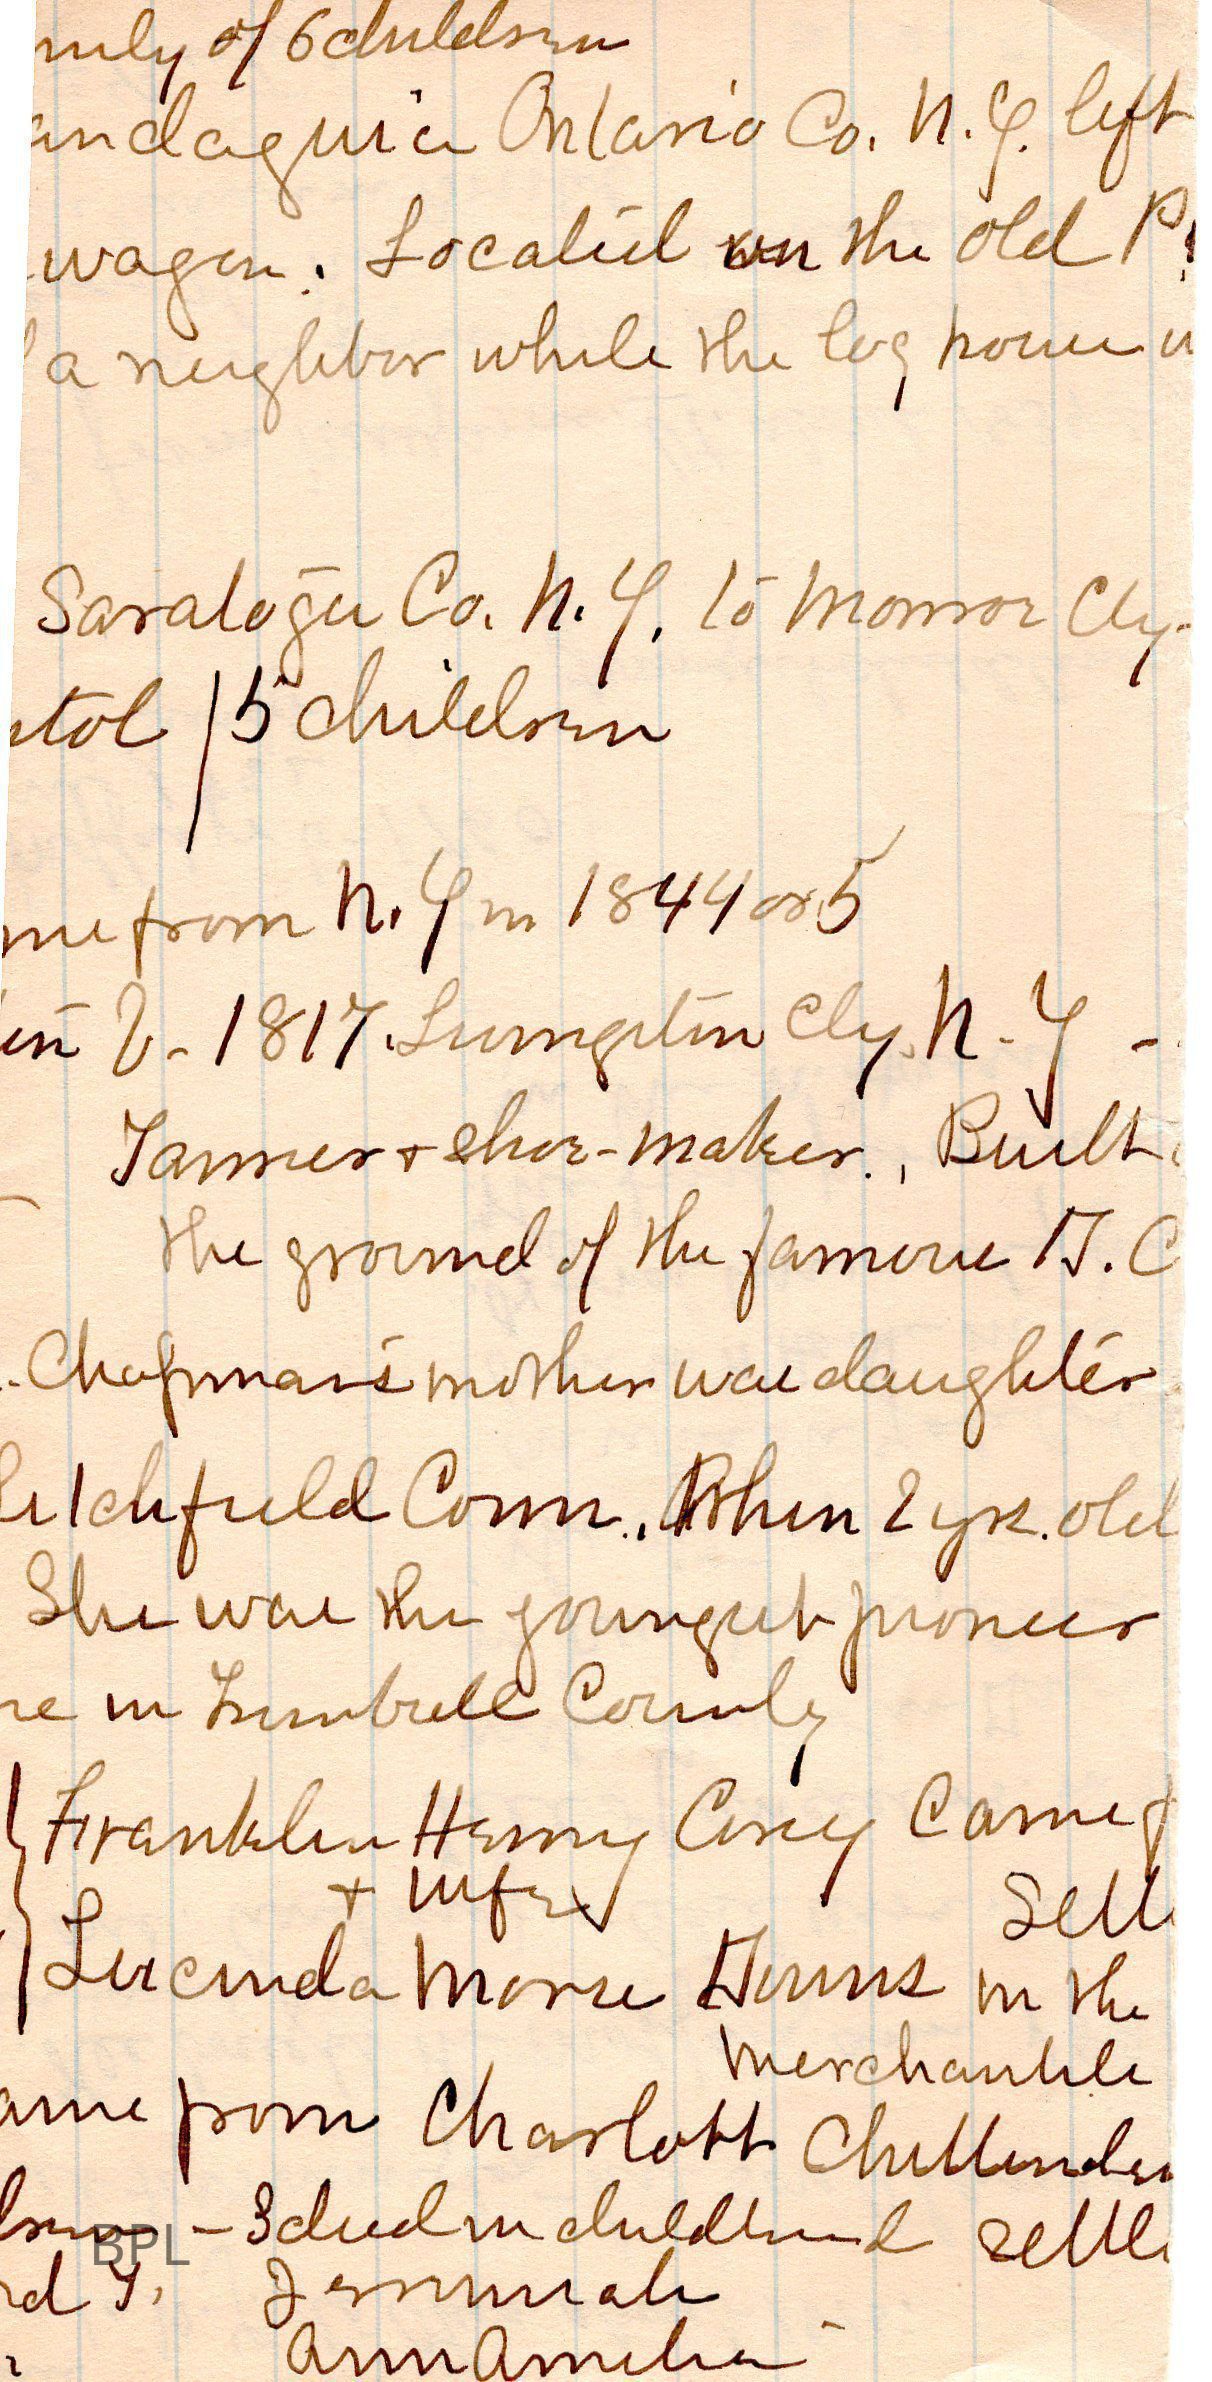 mily of 6 children
andaguia Ontario Co. N.Y. left
wagon. Located on the old P
a neighbor while the log house w
Saratoga Co. N.Y. to Monroe Cty.
stol / 5 children
me from N.Y in 1844 or 5
in b- 1817. Livingston Cty. N.Y -
Tanner + shoe-maker., Built
the ground of the famous D. C
Chapman's mother was daughter
Litchfield Conn., When 2 yrs. old
She was the youngest pioneer
re in Trumbull County
Franklin Henry Corey Came f
+ wife Settl
Lucinda Morse Downs in the
merchantile
ame from Charlott Chittenden
- 3 died in childhood settle
BPL
rd Y. Jerimiah
Ann Amelia